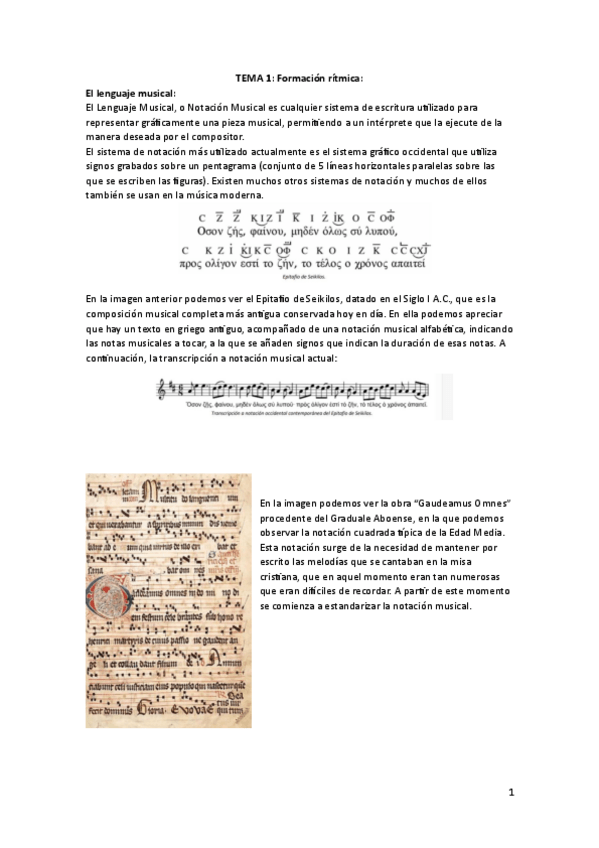 TEMA 1: Formación rítmica:
El lenguaje musical:
El Lenguaje Musical, o Notación Musical es cualquier sistema de escritura utilizado para
representar gráficamente una pieza musical, permitiendo a un intérprete que la ejecute de la
manera deseada por el compositor.
El sistema de notación más utilizado actualmente es el sistema gráfico occidental que utiliza
signos grabados sobre un pentagrama (conjunto de 5 líneas horizontales paralelas sobre las
que se escriben las figuras). Existen muchos otros sistemas de notación y muchos de ellos
también se usan en la música moderna.
C Z̅ Z̅ K I Z I̅ K̅ I Ż İK O C̅ O̅Φ
Ὅσον ζῇς, φαίνου, μηδὲν ὅλως σὺ λυποῦ,
C K Z İ K̇I K C̅ OΦ C K O I Z K̅ C C̅ CXI̅
πρὸς ὀλίγον ἐστὶ τὸ ζῆν, τὸ τέλος ὁ χρόνος ἀπαιτεῖ
Epitafio de Seikilos.
En la imagen anterior podemos ver el Epitafio de Seikilos, datado en el Siglo I A.C., que es la
composición musical completa más antigua conservada hoy en día. En ella podemos apreciar
que hay un texto en griego antiguo, acompañado de una notación musical alfabética, indicando
las notas musicales a tocar, a la que se añaden signos que indican la duración de esas notas. A
continuación, la transcripción a notación musical actual:
Ὅσον ζῇς, φαίνου, μηδὲν ὅλως σὺ λυποῦ πρὸς ὀλίγον ἐστὶ τὸ ζῆν, τὸ τέλος ὁ χρόνος ἀπαιτεῖ.
Transcripción a notación occidental contemporánea del Epitafio de Seikilos.
En la imagen podemos ver la obra “Gaudeamus Omnes”
procedente del Graduale Aboense, en la que podemos
observar la notación cuadrada típica de la Edad Media.
Esta notación surge de la necesidad de mantener por
escrito las melodías que se cantaban en la misa
cristiana, que en aquel momento eran tan numerosas
que eran difíciles de recordar. A partir de este momento
se comienza a estandarizar la notación musical.
1